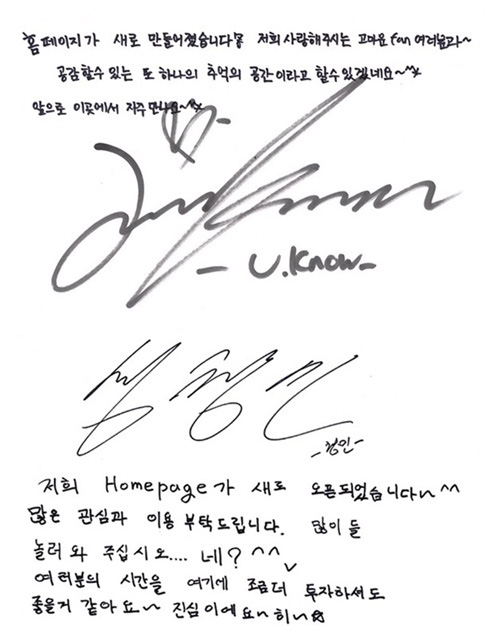 홈페이지가 새로 만들어졌습니다 저희 사랑해주시는 고마운 fan여러분과~
공감할수 있는 또 하나의 추억의 공간이라고 할수 있겠네요~^^
앞으로 이곳에서 자주 만나요~^^
- U.Know -
-창민-
저희 Homepage가 새로 오픈되었습니다~ ^^
많은 관심과 이용 부탁드립니다. 많이들
놀러 와 주십시오.... 네? ^^
여러분의 시간을 여기에 조금 더 투자하셔도
좋을거 같아요~ 진심이에요~히~